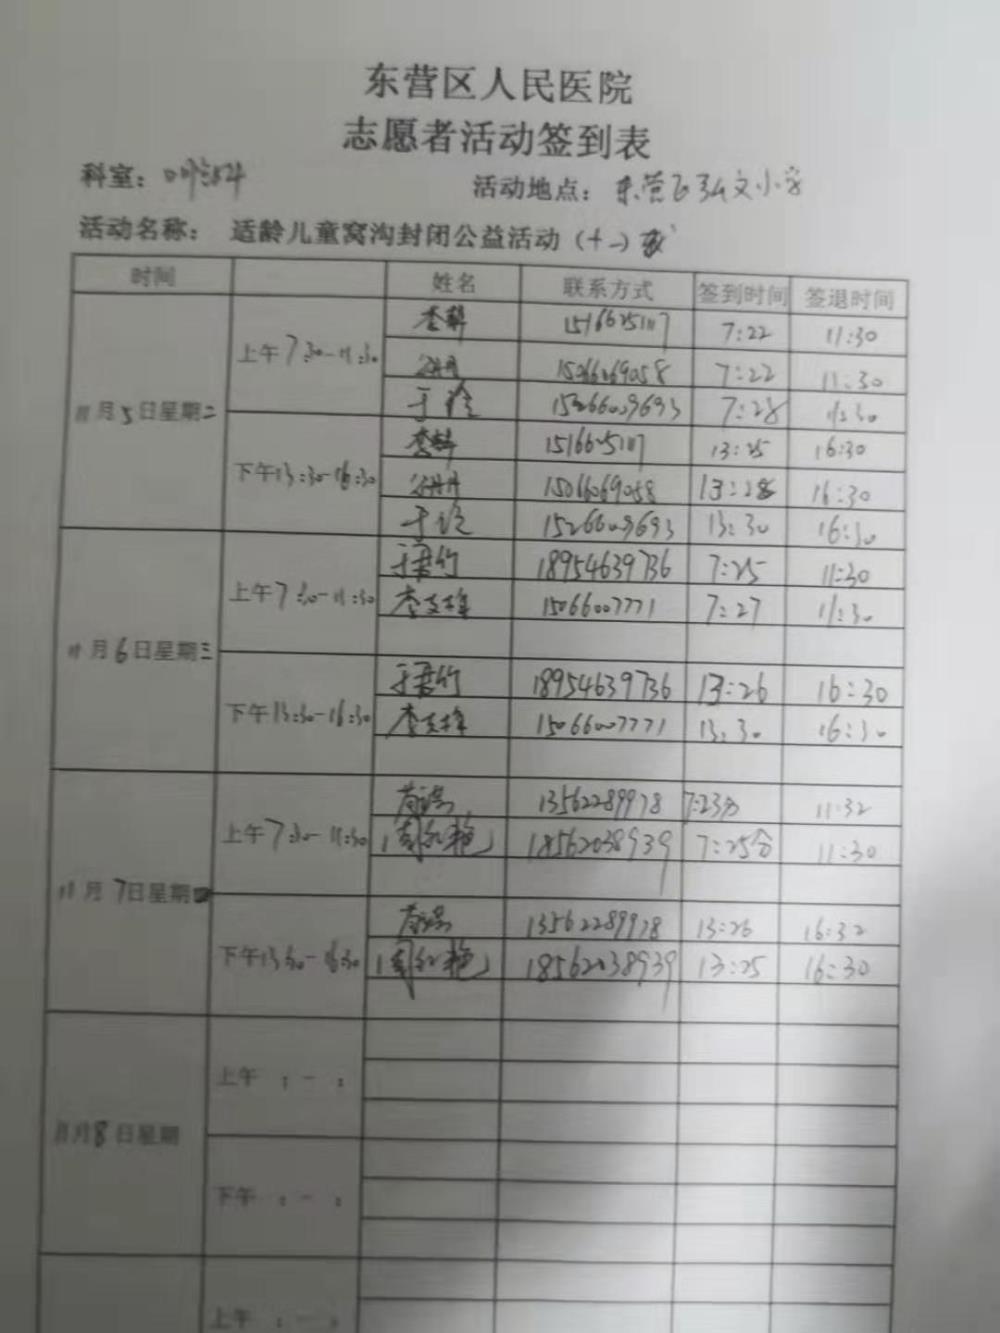 东营区人民医院
志愿者活动签到表
科室：口腔科 活动地点：东营区弘文小学
活动名称：适龄儿童窝沟封闭公益活动（十一）
时间 姓名 联系方式 签到时间 签退时间
11月5日星期二 上午7:30-11:30 7:22 11:30
15066069058 7:22 11:30
于 15266009693 7:28 11:30
下午13:30-16:30 13:25 16:30
15066069058 13:28 16:30
于 15266009693 13:30 16:30
11月6日星期三 上午7:30-11:30 于君竹 18954639736 7:25 11:30
李 15066007771 7:27 11:30
下午13:30-16:30 于君竹 18954639736 13:26 16:30
李 15066007771 13:30 16:30
11月7日星期四 上午7:30-11:30 13562289978 7:23分 11:32
周红艳 18562038939 7:25分 11:30
下午13:30-16:30 13562289978 13:26 16:32
周红艳 18562038939 13:25 16:30
11月8日星期 上午 : - :
下午 : - :
上午 : - :